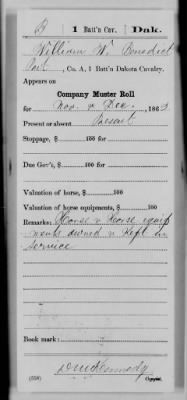 B 1 Batt'n Cav. Dak.
William W. Benedict
Pvt, Co. A, 1 Batt'n Dakota Cavalry.
Appears on
Company Muster Roll
for Nov & Dec, 1863.
Present or absent Present
Stoppage, $ 100 for
Due Gov't, $ 100 for
Valuation of horse, $ 100
Valuation of horse equipments, $ 100
Remarks: Horse & Horse equip
ments owned & Kept in
service
Book mark:
Kennedy
(358) Copyist.